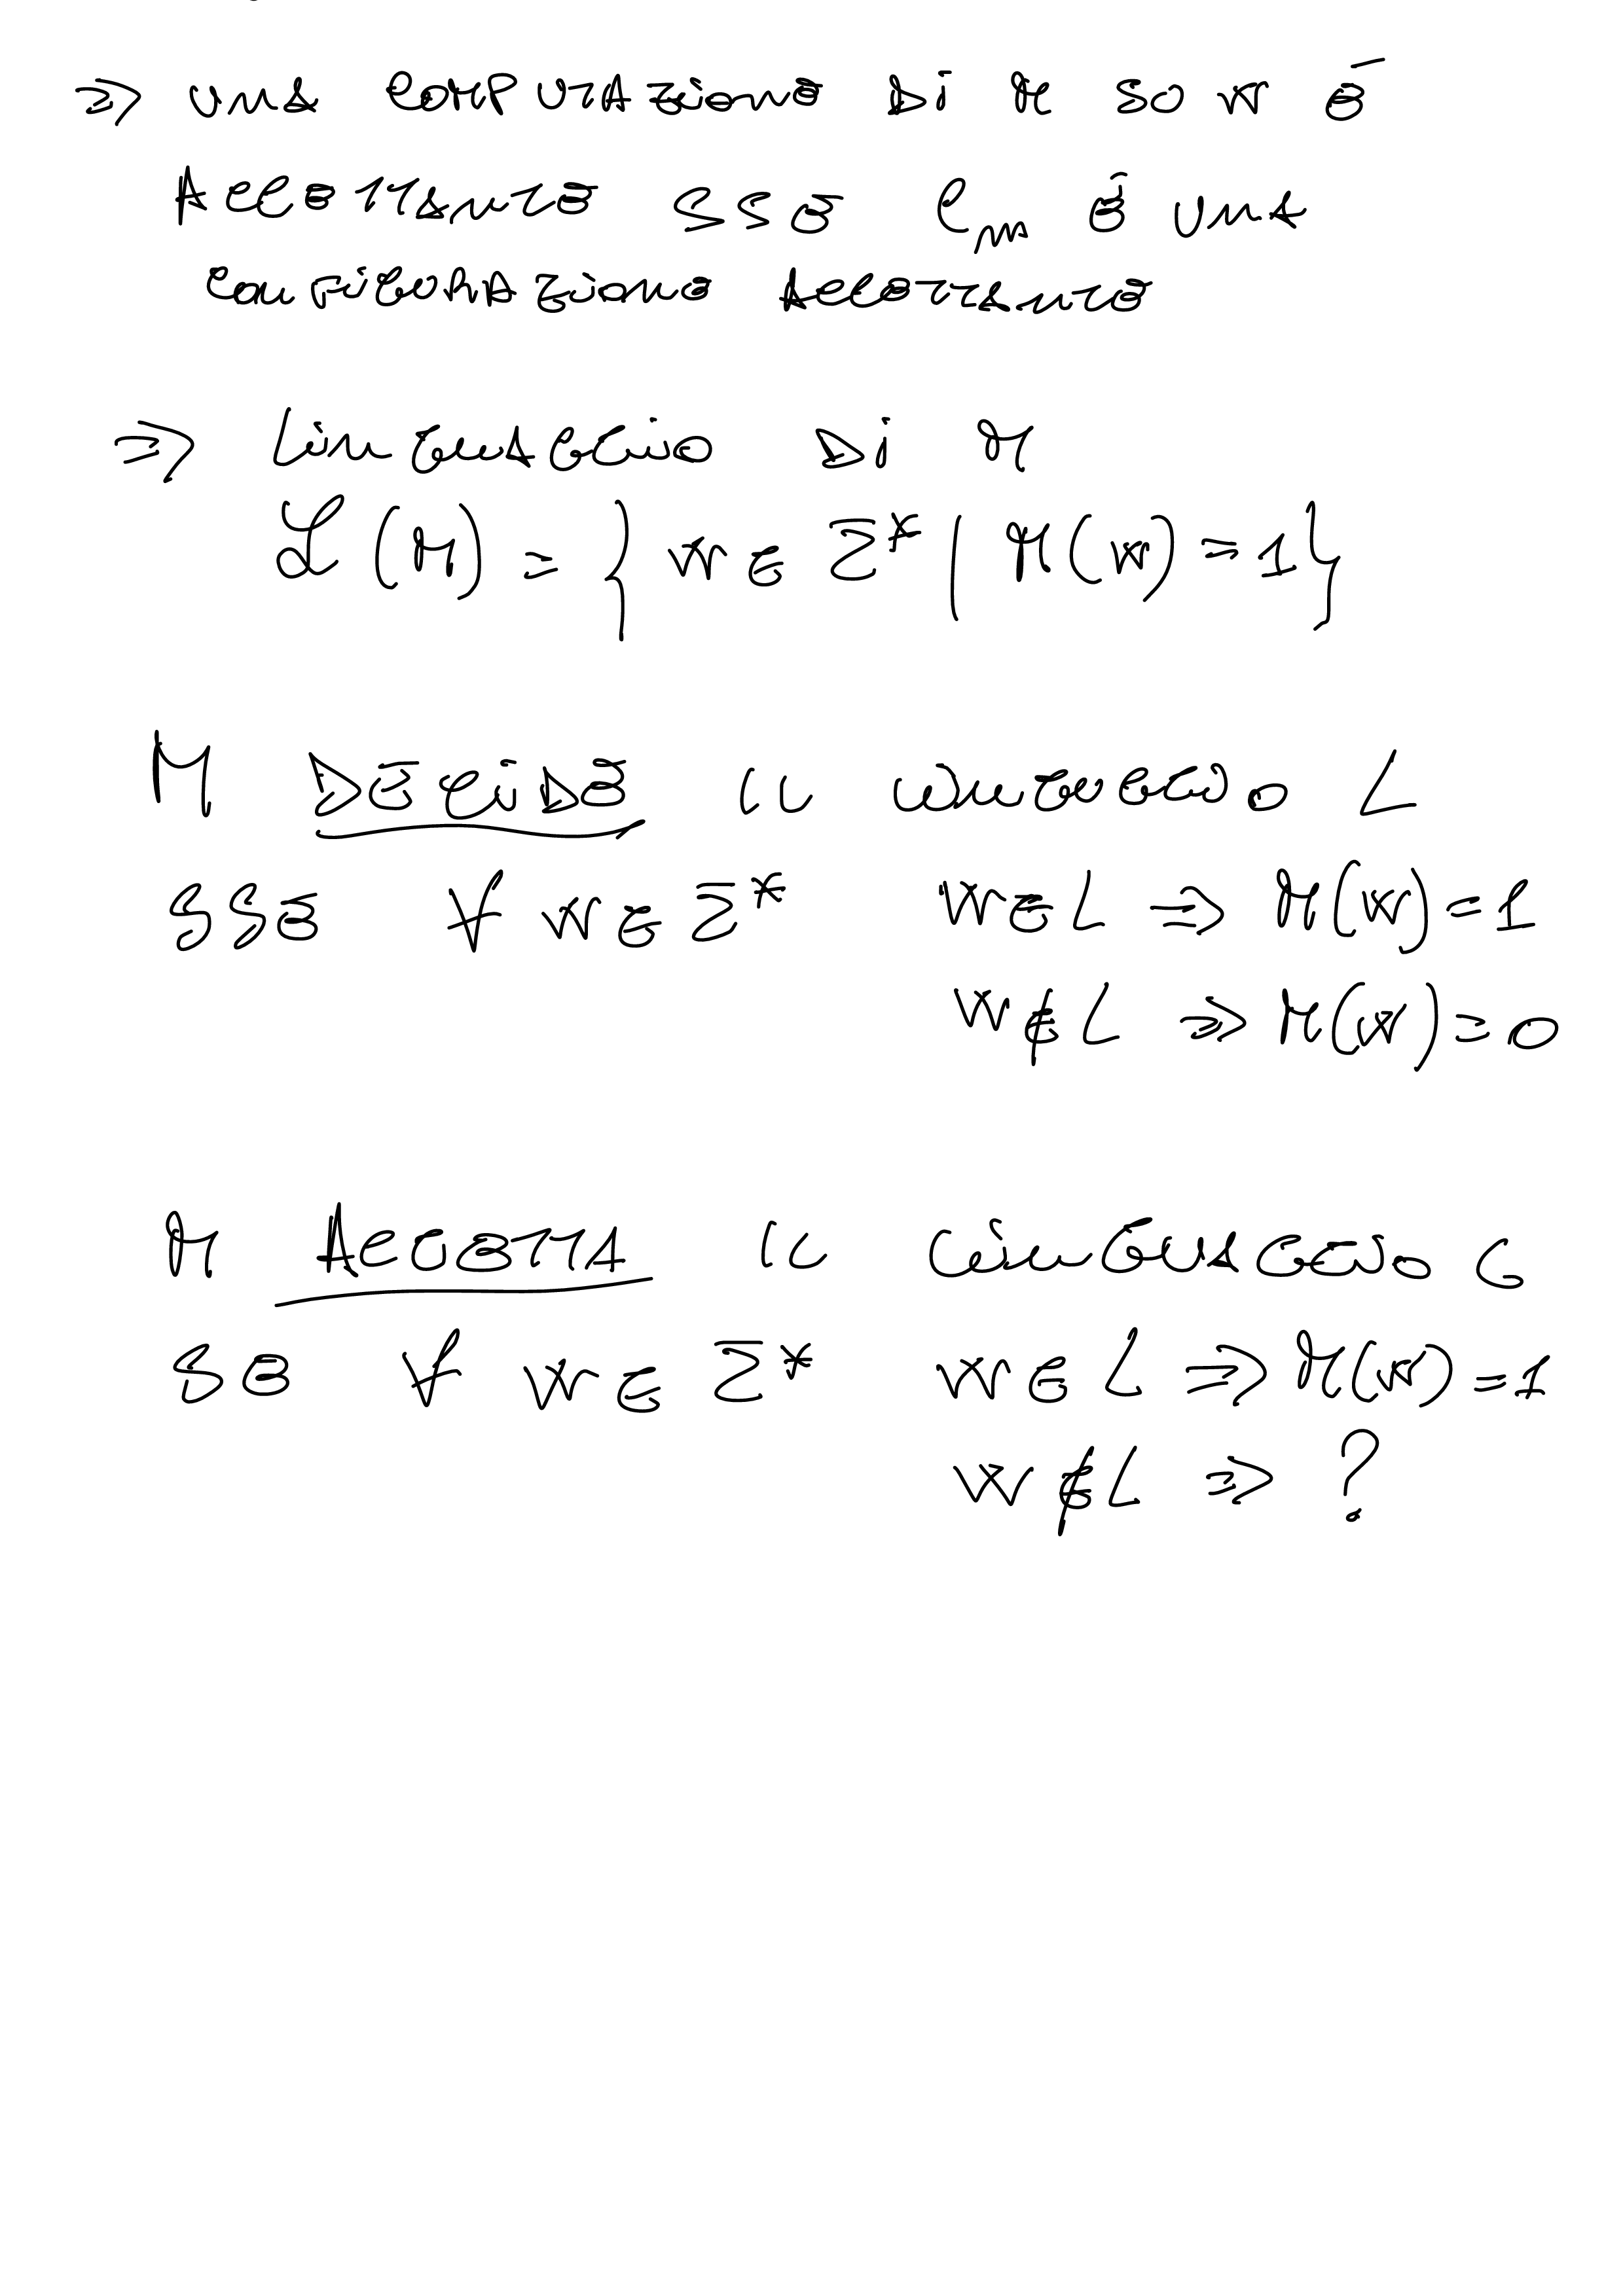 ⇒ UNA COMPUTAZIONE DI M SU W È
ACCETTANTE SSE Cm È UNA
CONFIGURAZIONE ACCETTANTE
⇒ LINGUAGGIO DI M
ℒ(M) = { W ∈ Σ* | M(W) = 1 }
M DECIDE IL LINGUAGGIO L
SSE ∀ W ∈ Σ* W ∈ L ⇒ M(W) = 1
W ∉ L ⇒ M(W) = 0
M ACCETTA IL LINGUAGGIO L
SE ∀ W ∈ Σ* W ∈ L ⇒ M(W) = 1
W ∉ L ⇒ ?